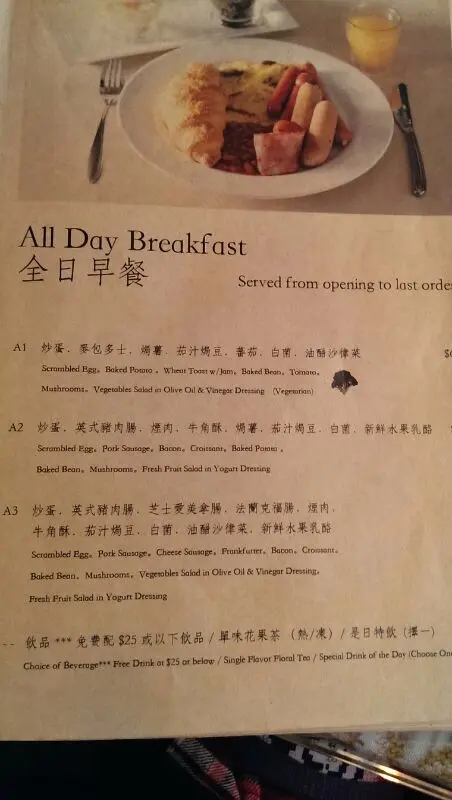 All Day Breakfast
全日早餐
Served from opening to last orde
A1 炒蛋．麥包多士．焗薯．茄汁焗豆．蕃茄．白菌．油醋沙律菜
Scrambled Egg。Baked Potato。Wheat Toast w/Jam。Baked Bean。Tomato。
Mushrooms。Vegetables Salad in Olive Oil & Vinegar Dressing (Vegetarian)
A2 炒蛋．英式豬肉腸．煙肉．牛角酥．焗薯．茄汁焗豆．白菌．新鮮水果乳酪
Scrambled Egg。Pork Sausage。Bacon。Croissant。Baked Potato。
Baked Bean。Mushrooms。Fresh Fruit Salad in Yogurt Dressing
A3 炒蛋．英式豬肉腸．芝士愛美拿腸．法蘭克福腸．煙肉．
牛角酥．茄汁焗豆．白菌．油醋沙律菜．新鮮水果乳酪
Scrambled Egg。Pork Sausage。Cheese Sausage。Frankfurter。Bacon。Croissant。
Baked Bean。Mushrooms。Vegetables Salad in Olive Oil & Vinegar Dressing。
Fresh Fruit Salad in Yogurt Dressing
-- 飲品 *** 免費配 $25 或以下飲品 / 單味花果茶 （熱/凍） / 是日特飲 (擇一)
Choice of Beverage*** Free Drink at $25 or below / Single Flavor Floral Tea / Special Drink of the Day (Choose On